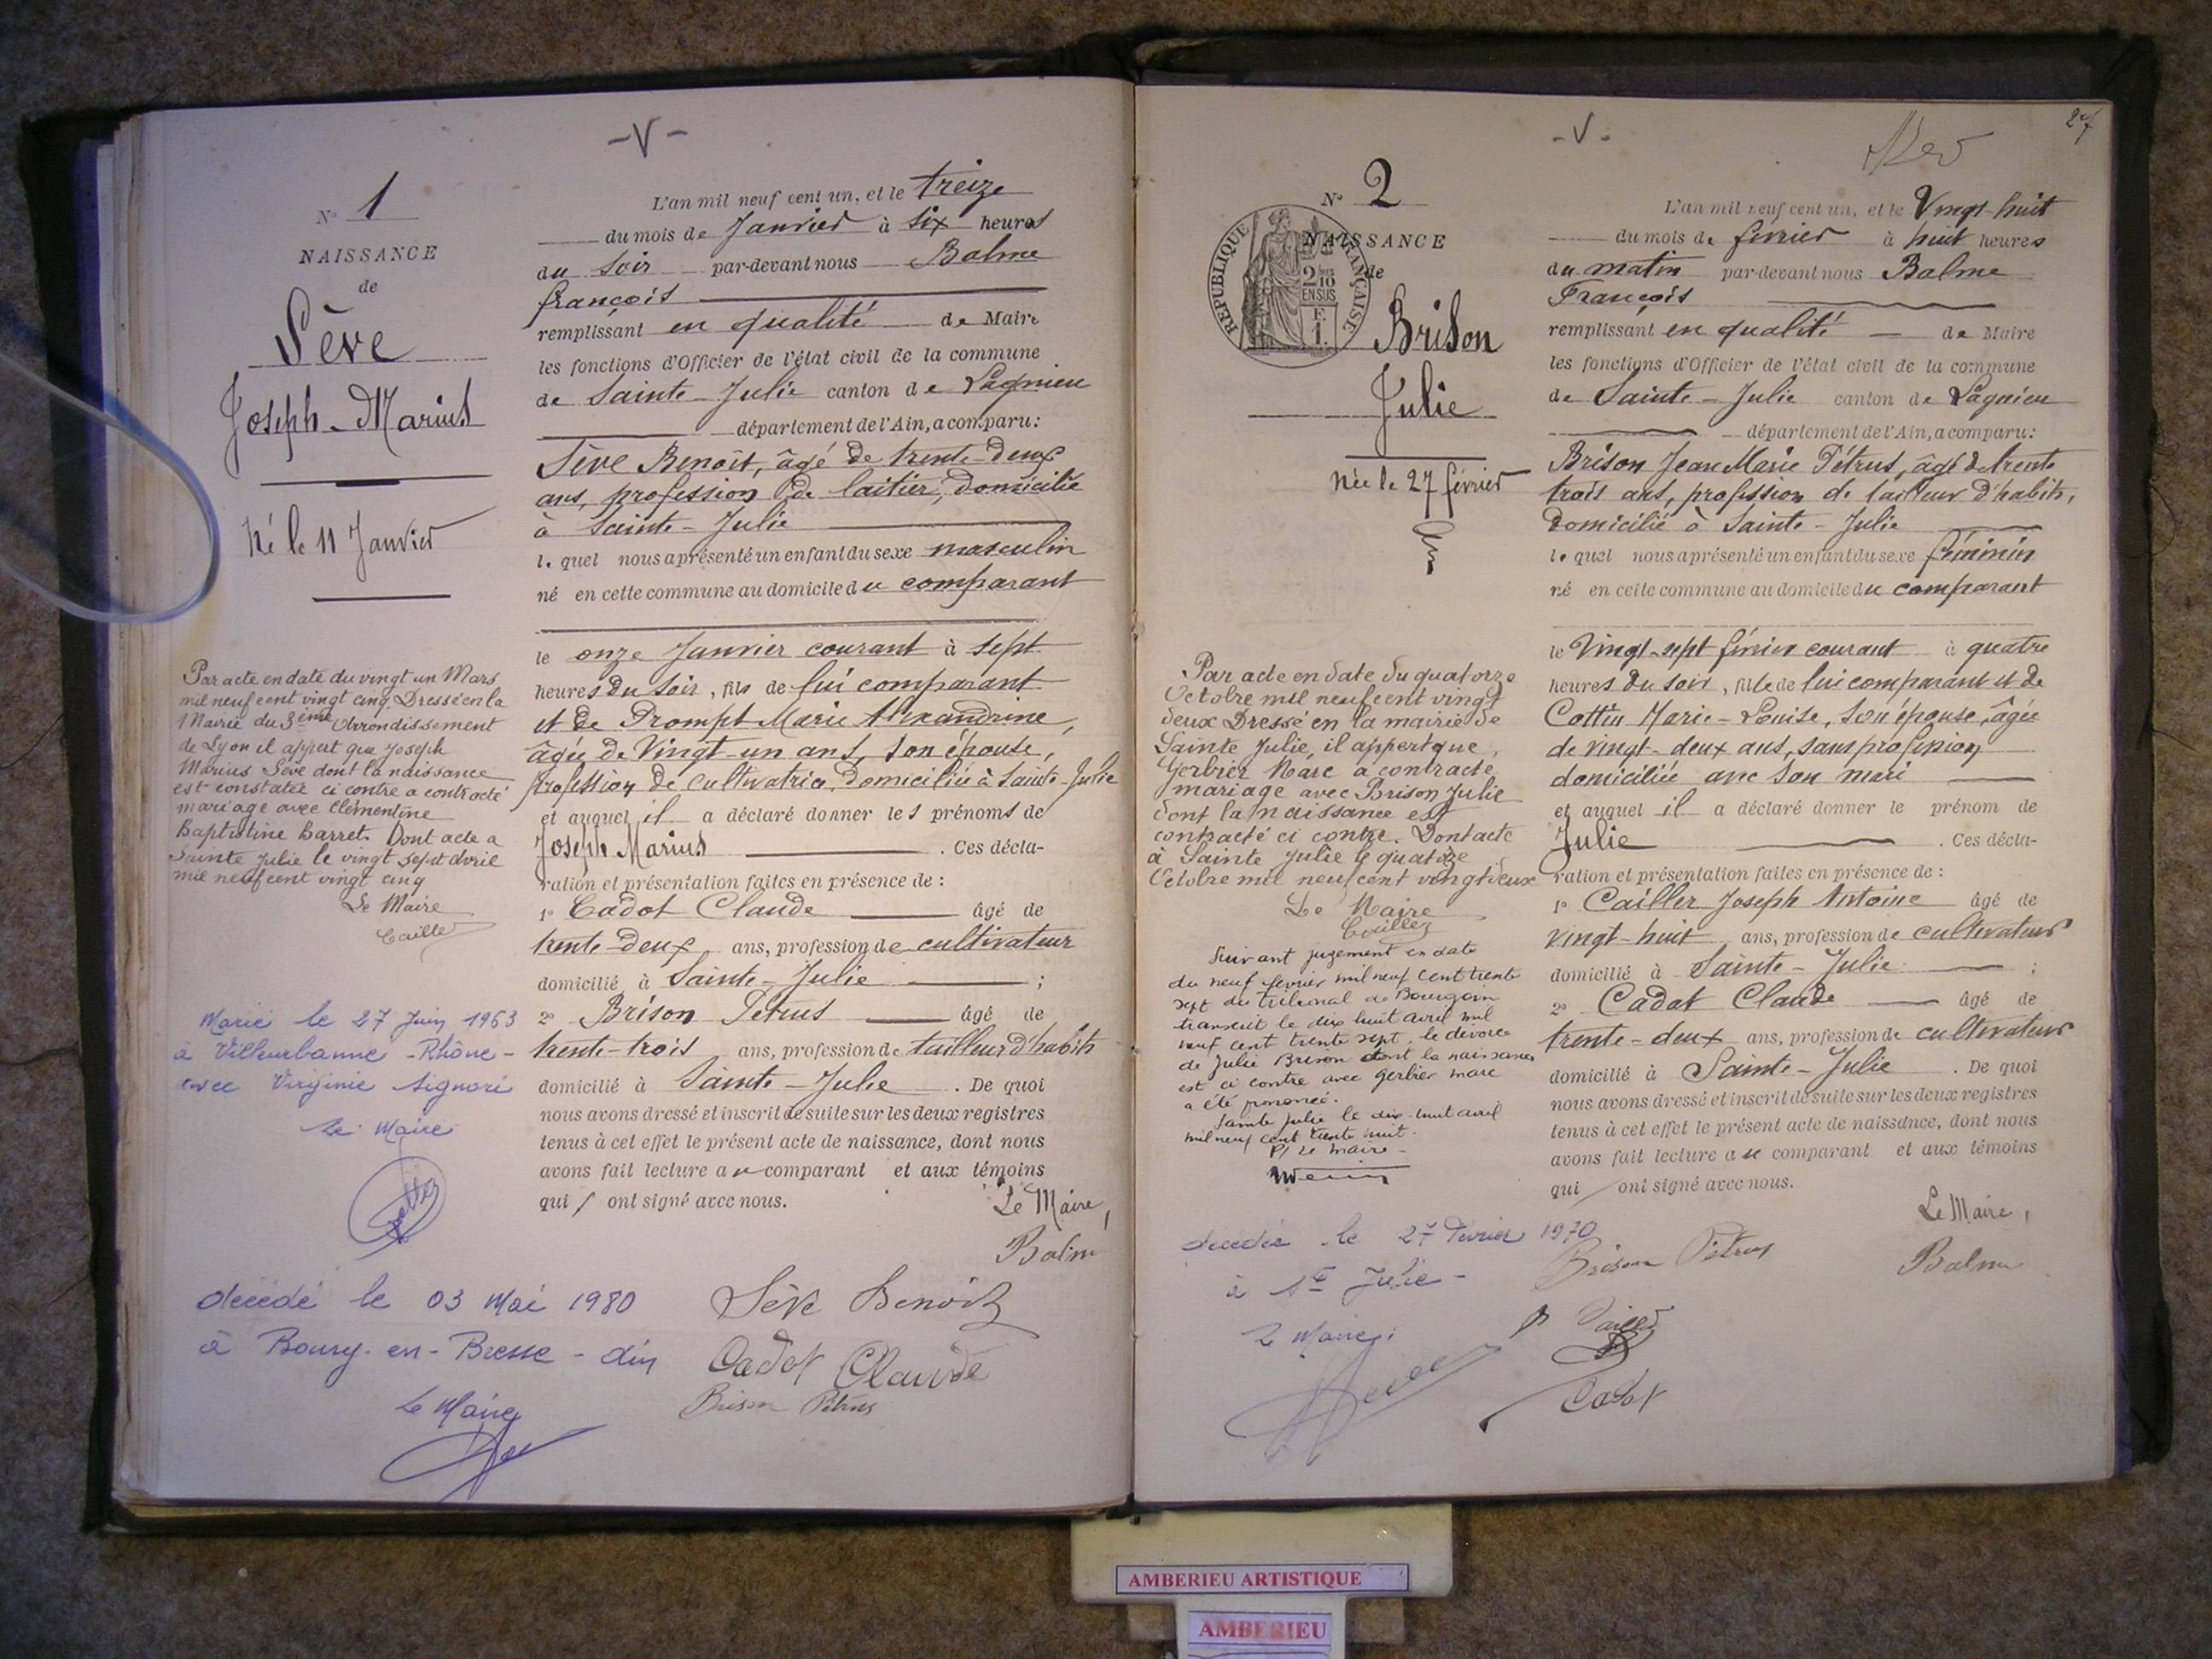 - V -
N° 1
NAISSANCE
de
Sève
Joseph-Marius
Né le 11 Janvier
L'an mil neuf cent un, et le treize
du mois de Janvier à six heures
du soir par-devant nous Balme
françois
remplissant en qualité de Maire
les fonctions d'Officier de l'état civil de la commune
de Sainte-Julie canton de Lagnieu
département de l'Ain, a comparu:
Sève Benoît, âgé de trente-deux
ans, profession de laitier, domicilié
à Sainte-Julie
le quel nous a présenté un enfant du sexe masculin
né en cette commune au domicile du comparant
le onze Janvier courant à sept
heures du soir, fils de lui comparant
et de Prompt Marie Alexandrine,
âgée de Vingt-un ans, son épouse,
profession de cultivatrice, domiciliée à Sainte-Julie
et auquel il a déclaré donner les prénoms de
Joseph Marius . Ces décla-
ration et présentation faites en présence de :
1° Cadot Claude âgé de
trente-deux ans, profession de cultivateur
domicilié à Sainte-Julie ;
2° Brison Pétrus âgé de
trente-trois ans, profession de tailleur d'habits
domicilié à Sainte-Julie . De quoi
nous avons dressé et inscrit de suite sur les deux registres
tenus à cet effet le présent acte de naissance, dont nous
avons fait lecture au comparant et aux témoins
qui ont signé avec nous.
Le Maire,
Balme
Sève Benoit
Cadot Claude
Brison Pétrus
Par acte en date du vingt un Mars
mil neuf cent vingt cinq. Dressé en la
Mairie du 3ème Arrondissement
de Lyon il appert que Joseph
Marius Sève dont la naissance
est constatée ci contre a contracté
mariage avec Clémentine
Baptistine Barret. Dont acte a
Sainte Julie le vingt sept avril
mil neuf cent vingt cinq
Le Maire
Caille
Marié le 27 Juin 1963
à Villeurbanne - Rhône -
avec Virginie Signori
Le Maire
décédé le 03 Mai 1980
à Bourg-en-Bresse - Ain
Le Maire
27
- V -
N° 2
NAISSANCE
de
REPUBLIQUE FRANÇAISE
2/10
EN SUS
F.
1.
Brison
Julie
Née le 27 février
L'an mil neuf cent un, et le Vingt-huit
du mois de février à huit heures
du matin par-devant nous Balme
François
remplissant en qualité de Maire
les fonctions d'Officier de l'état civil de la commune
de Sainte-Julie canton de Lagnieu
département de l'Ain, a comparu:
Brison Jean Marie Pétrus, âgé de trente
trois ans, profession de tailleur d'habits,
domicilié à Sainte-Julie
le quel nous a présenté un enfant du sexe féminin
né en cette commune au domicile du comparant
le Vingt-sept février courant à quatre
heures du soir, fille de lui comparant et de
Cottin Marie-Louise, son épouse, âgée
de vingt-deux ans, sans profession
domiciliée avec son mari
et auquel il a déclaré donner le prénom de
Julie . Ces décla-
ration et présentation faites en présence de :
1° Cailler Joseph Antoine âgé de
vingt-huit ans, profession de cultivateur
domicilié à Sainte-Julie ;
2° Cadot Claude âgé de
trente-deux ans, profession de cultivateur
domicilié à Sainte-Julie . De quoi
nous avons dressé et inscrit de suite sur les deux registres
tenus à cet effet le présent acte de naissance, dont nous
avons fait lecture au comparant et aux témoins
qui ont signé avec nous.
Le Maire,
Balme
Brison Pétrus
Cadot
Par acte en date du quatorze
Octobre mil neuf cent vingt
deux Dressé en la mairie de
Sainte Julie, il appert que,
Gerbier Marc a contracté
mariage avec Brison Julie
dont la naissance est
contracté ci contre. Dont acte
à Sainte Julie le quatorze
Octobre mil neuf cent vingt deux
Le Maire
Cailler
Suivant jugement en date
du neuf fevrier mil neuf cent trente
sept du tribunal de Bourgoin
transcrit le dix huit avril mil
neuf cent trente sept, le divorce
de Julie Brison dont la naissance
est ci contre avec Gerbier Marc
a été prononcé.
Sainte Julie le dix-huit avril
mil neuf cent trente huit.
P/ Le Maire
décédée le 27 Février 1970
à Ste Julie -
Le Maire :
AMBERIEU ARTISTIQUE
AMBERIEU